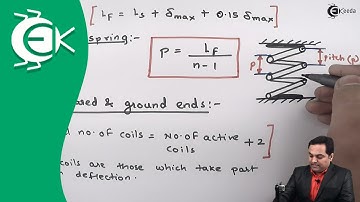 Ekeeda
[ LF = Ls + δmax + 0.15 δmax ]
spring:-
P = LF / n-1
P
pitch (p)
& ground ends:-
no. of coils = No. of active coils + 2 ]
coils are those which take part
deflection.